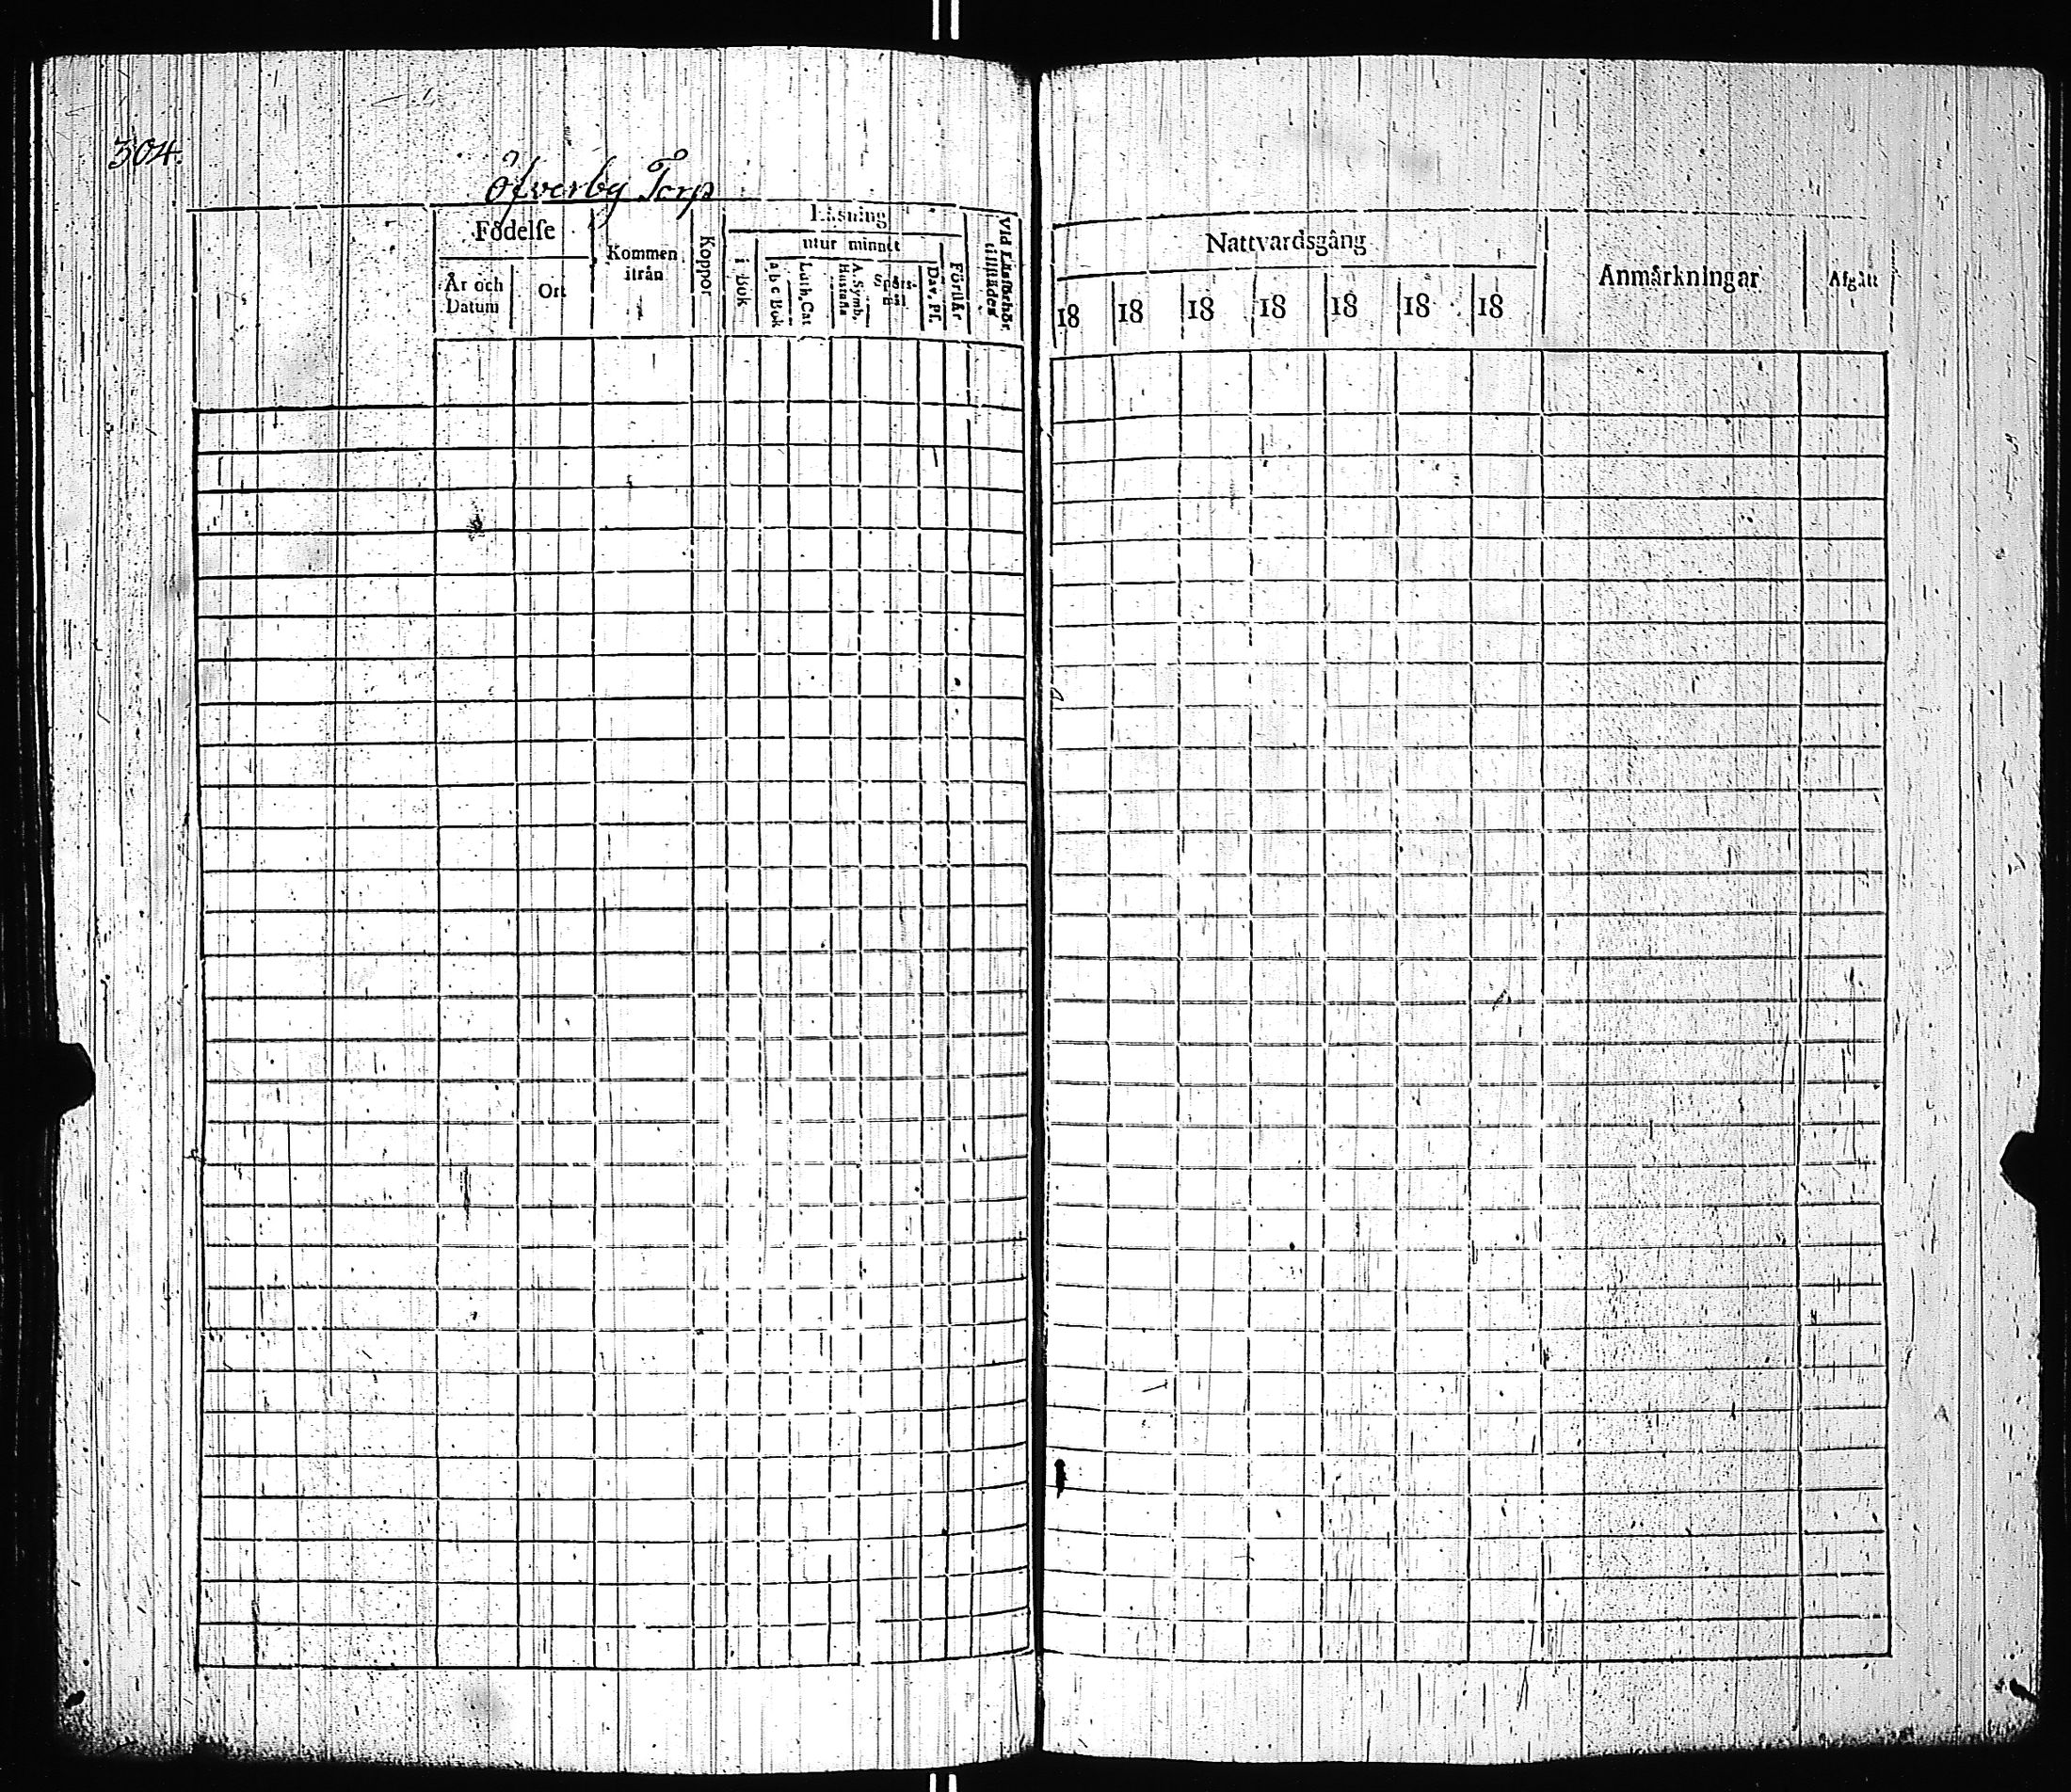 304.
Öfverby Torp
Födelse
År och Datum
Ort
Kommen ifrån
Koppor
Läsning
i Bok
utur minnet
a, b, c Bok
Luth. Cat
A. Symb. Hustafla
Spörs-mål
Dav. Ps.
Förstår
Vid Läsförhör tillstädes
Nattvardsgång
18 18 18 18 18 18 18
Anmärkningar
Afgått